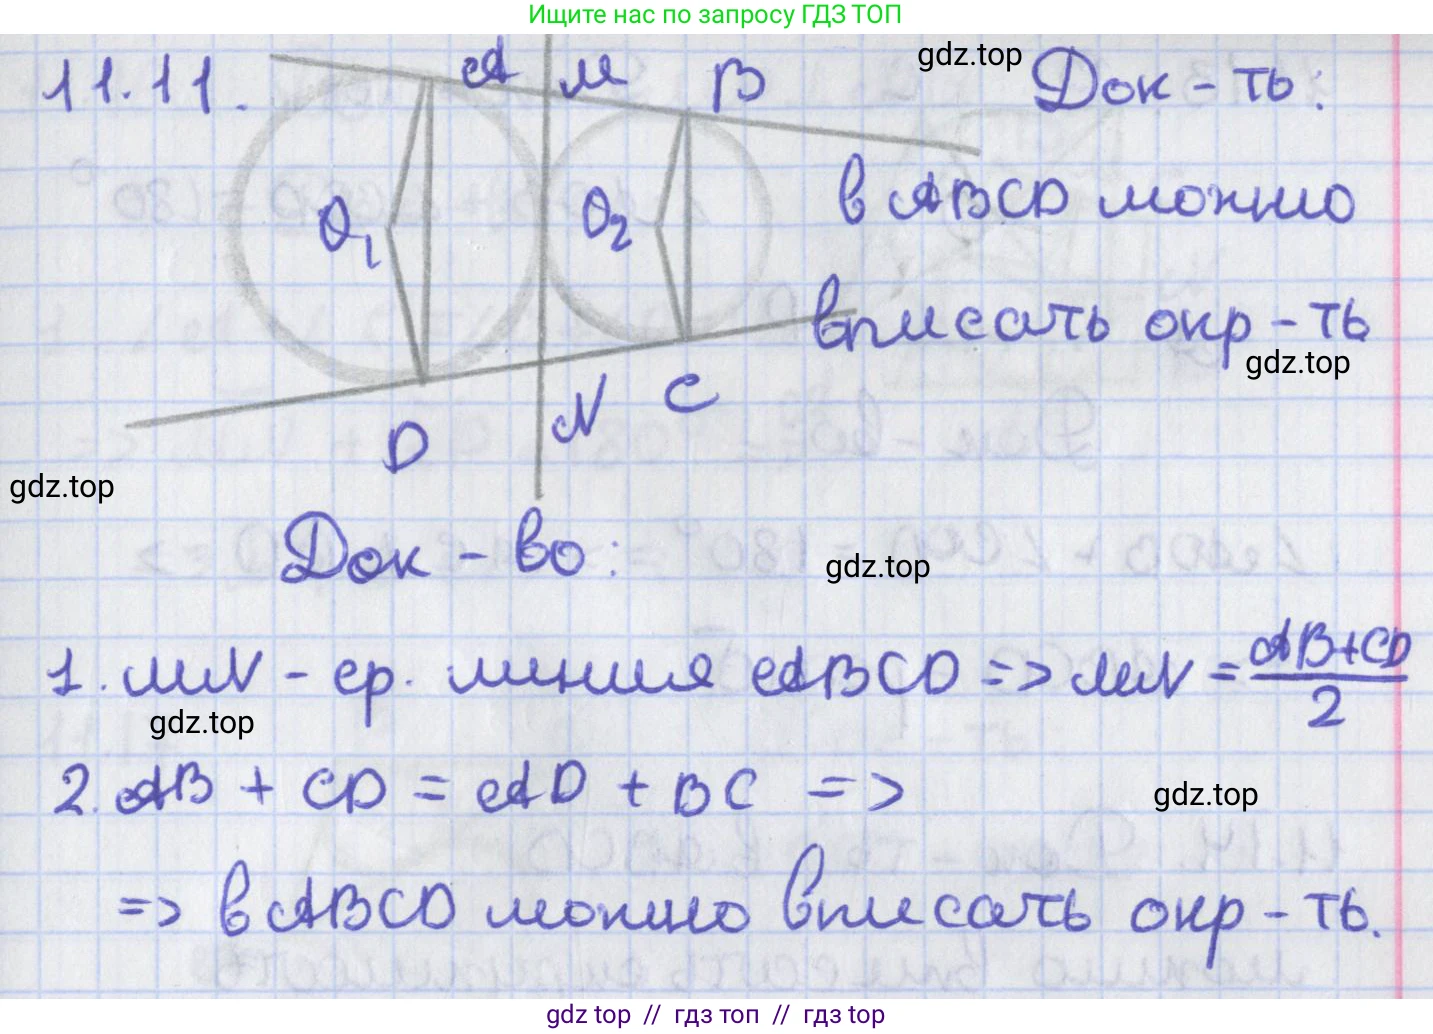 Ищите нас по запросу ГДЗ ТОП
11.11.
A M B
gdz.top
Док-ть:
в ABCD можно
O₁ O₂
вписать окр-ть
gdz.top
D N C
gdz.top
Док-во:
gdz.top
1. MN - ср. линия ABCD => MN = AB+CD/2
gdz.top
2. AB + CD = AD + BC =>
gdz.top
=> в ABCD можно вписать окр-ть.
gdz top // гдз топ // гдз top